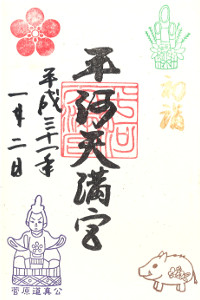 平河天満宮
平成三十一年
一月二日
初詣
菅原道真公